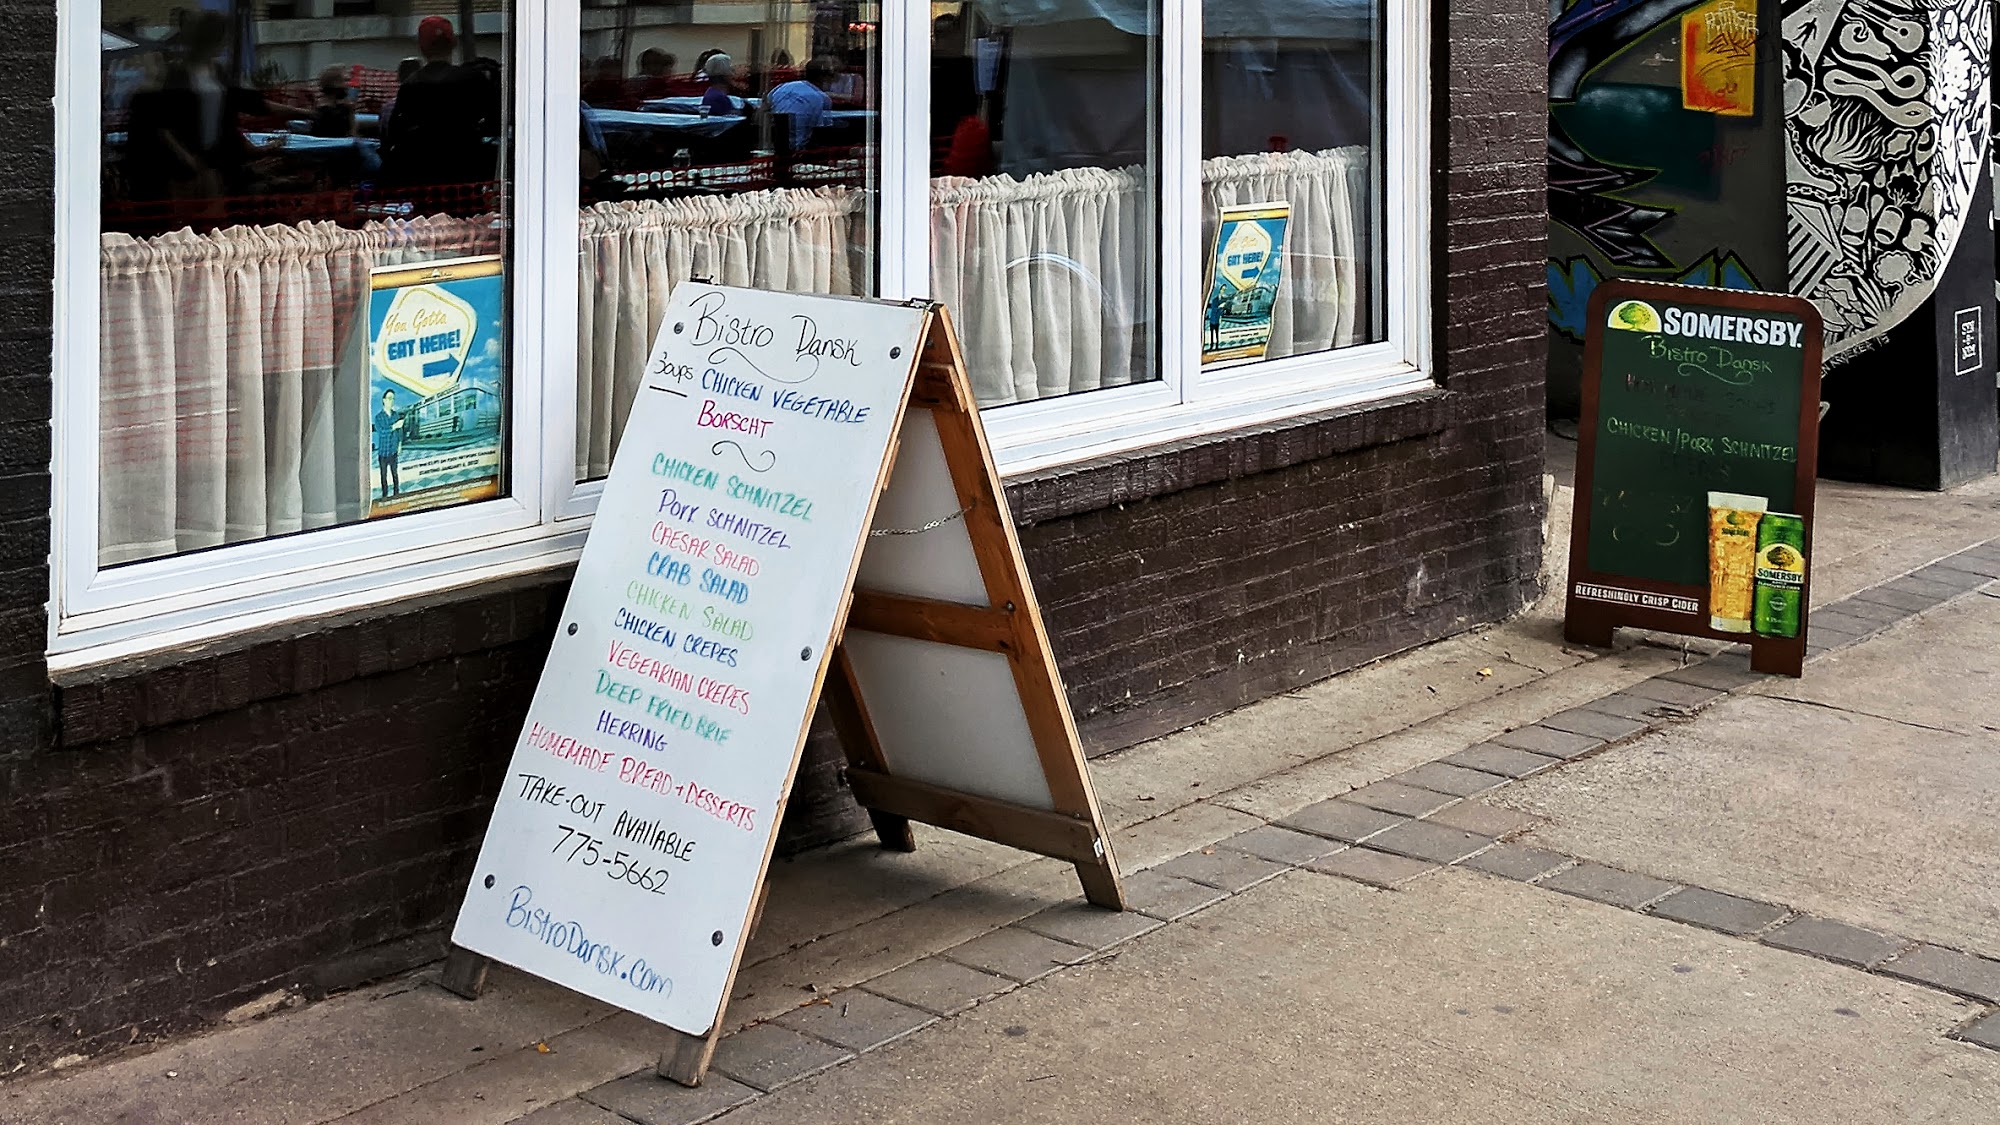 Bistro Dansk
Soups CHICKEN VEGETABLE
BORSCHT
CHICKEN SCHNITZEL
PORK SCHNITZEL
CAESAR SALAD
CRAB SALAD
CHICKEN SALAD
CHICKEN CREPES
VEGEARIAN CREPES
DEEP FRIED BRIE
HERRING
HOMEMADE BREAD + DESSERTS
TAKE-OUT AVAILABLE
775-5662
BistroDansk.com
You Gotta
EAT HERE!
You Gotta
EAT HERE!
SOMERSBY.
Bistro Dansk
CHICKEN/PORK SCHNITZEL
SOMERSBY
SOMERSBY
REFRESHINGLY CRISP CIDER